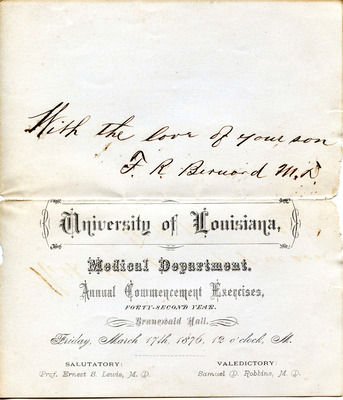 With the love of your son
F. R. Bernard M.D.
University of Louisiana,
Medical Department.
Annual Commencement Exercises,
FORTY-SECOND YEAR.
Grunewald Hall.
Friday, March 17th, 1876, 12 o'clock, M.
SALUTATORY: VALEDICTORY:
Prof. Ernest S. Lewis, M. D. Samuel D. Robbins, M. D.